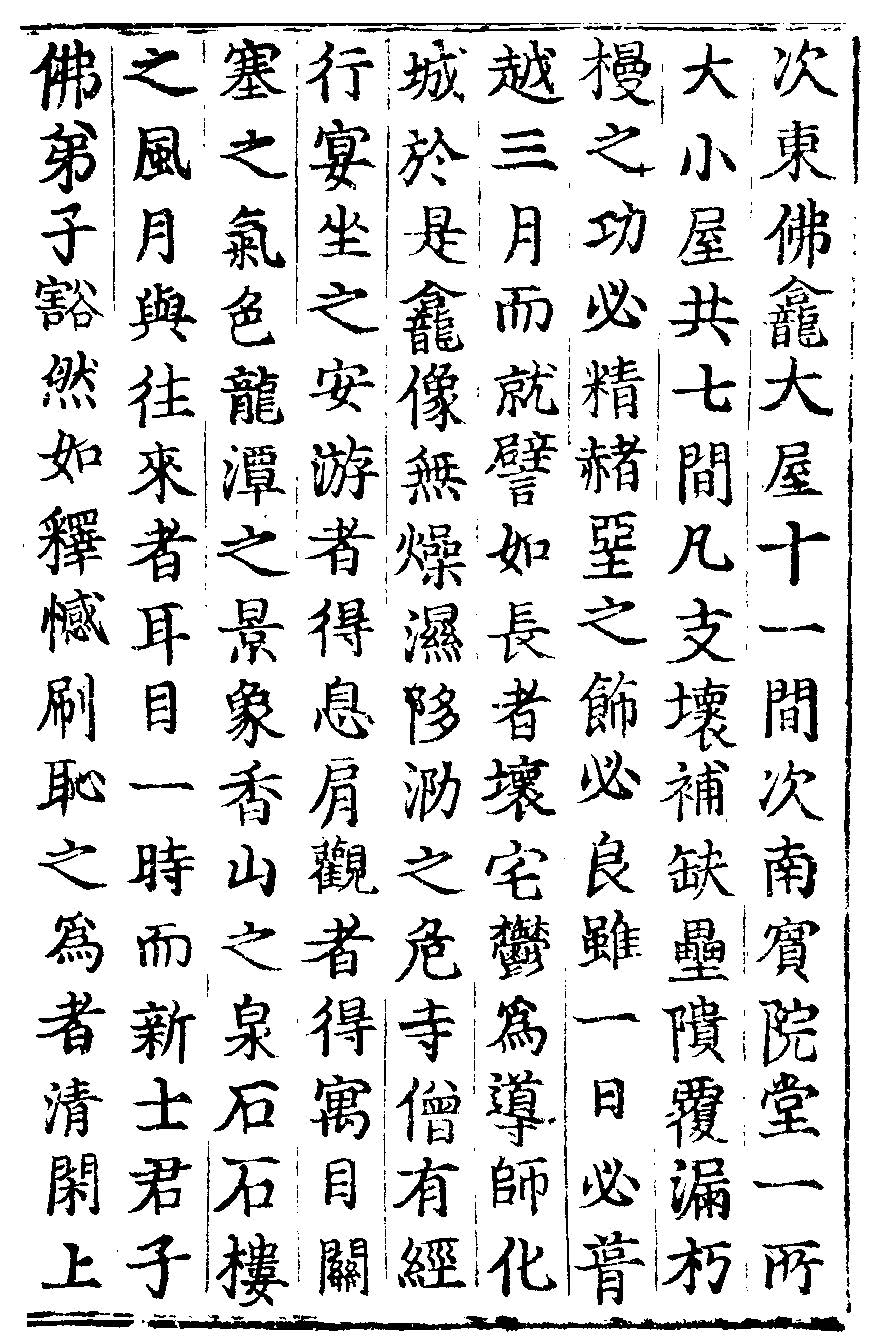 次東佛龕大屋十一間次南賓院堂一所
大小屋共七間凡支壞補缺壘隤覆漏朽
槾之功必精赭堊之飾必良雖一日必葺
越三月而就譬如長者壞宅鬱爲導師化
城於是龕像無燥濕陊泐之危寺僧有經
行宴坐之安游者得息肩觀者得寓目關
塞之氣色龍潭之景象香山之泉石石樓
之風月與往來者耳目一時而新士君子
佛弟子豁然如釋憾刷恥之爲者清閑上